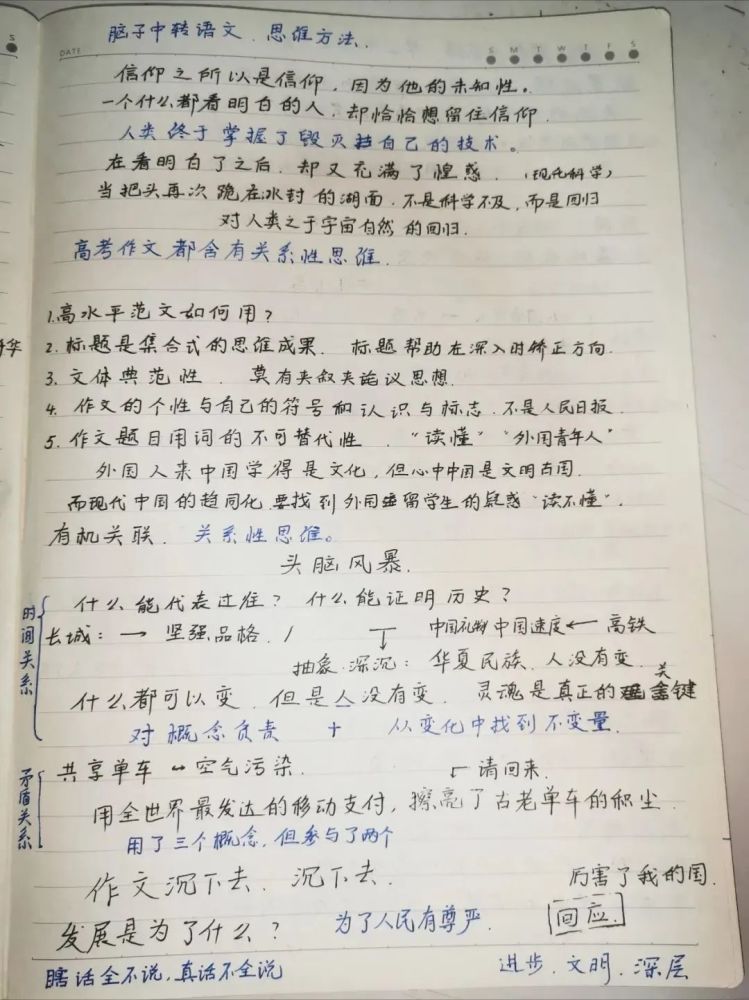 脑子中转语文．思维方法．
DATE
S M T W T F S
信仰之所以是信仰，因为他的未知性。
一个什么都看明白的人，却恰恰想留住信仰．
人类终于掌握了毁灭自己的技术。
在看明白了之后，却又充满了惶惑．（现代科学）
当把头再次跪在冰封的湖面，不是科学不及，而是回归
对人类之于宇宙自然的回归．
高考作文都含有关系性思维．
1.高水平范文如何用？
2.标题是集合式的思维成果．标题帮助在深入时矫正方向．
3.文体典范性．莫有夹叙夹论议思想．
4.作文的个性与自己的符号和认识与标志．不是人民日报．
5.作文题目用词的不可替代性．“读懂”“外国青年人”
外国人来中国学得是文化，但心中中国是文明古国．
而现代中国的趋同化．要找到外国留学生的疑惑“读不懂”．
有机关联．关系性思维。
头脑风暴．
时间关系
什么能代表过往？什么能证明历史？
长城：→ 坚强品格．/ 中国礼物 中国速度←高铁
抽象·深沉：华夏民族．人没有变．
什么都可以变．但是人没有变．灵魂是真正的关键
对概念负责 + 从变化中找到不变量．
矛盾关系
共享单车↔空气污染． 请回来．
用全世界最发达的移动支付，擦亮了古老单车的积尘．
用了三个概念，但参与了两个
作文沉下去．沉下去． 厉害了我的国．
发展是为了什么？ 为了人民有尊严． 回应．
瞎话全不说，真话不全说 进步．文明．深层